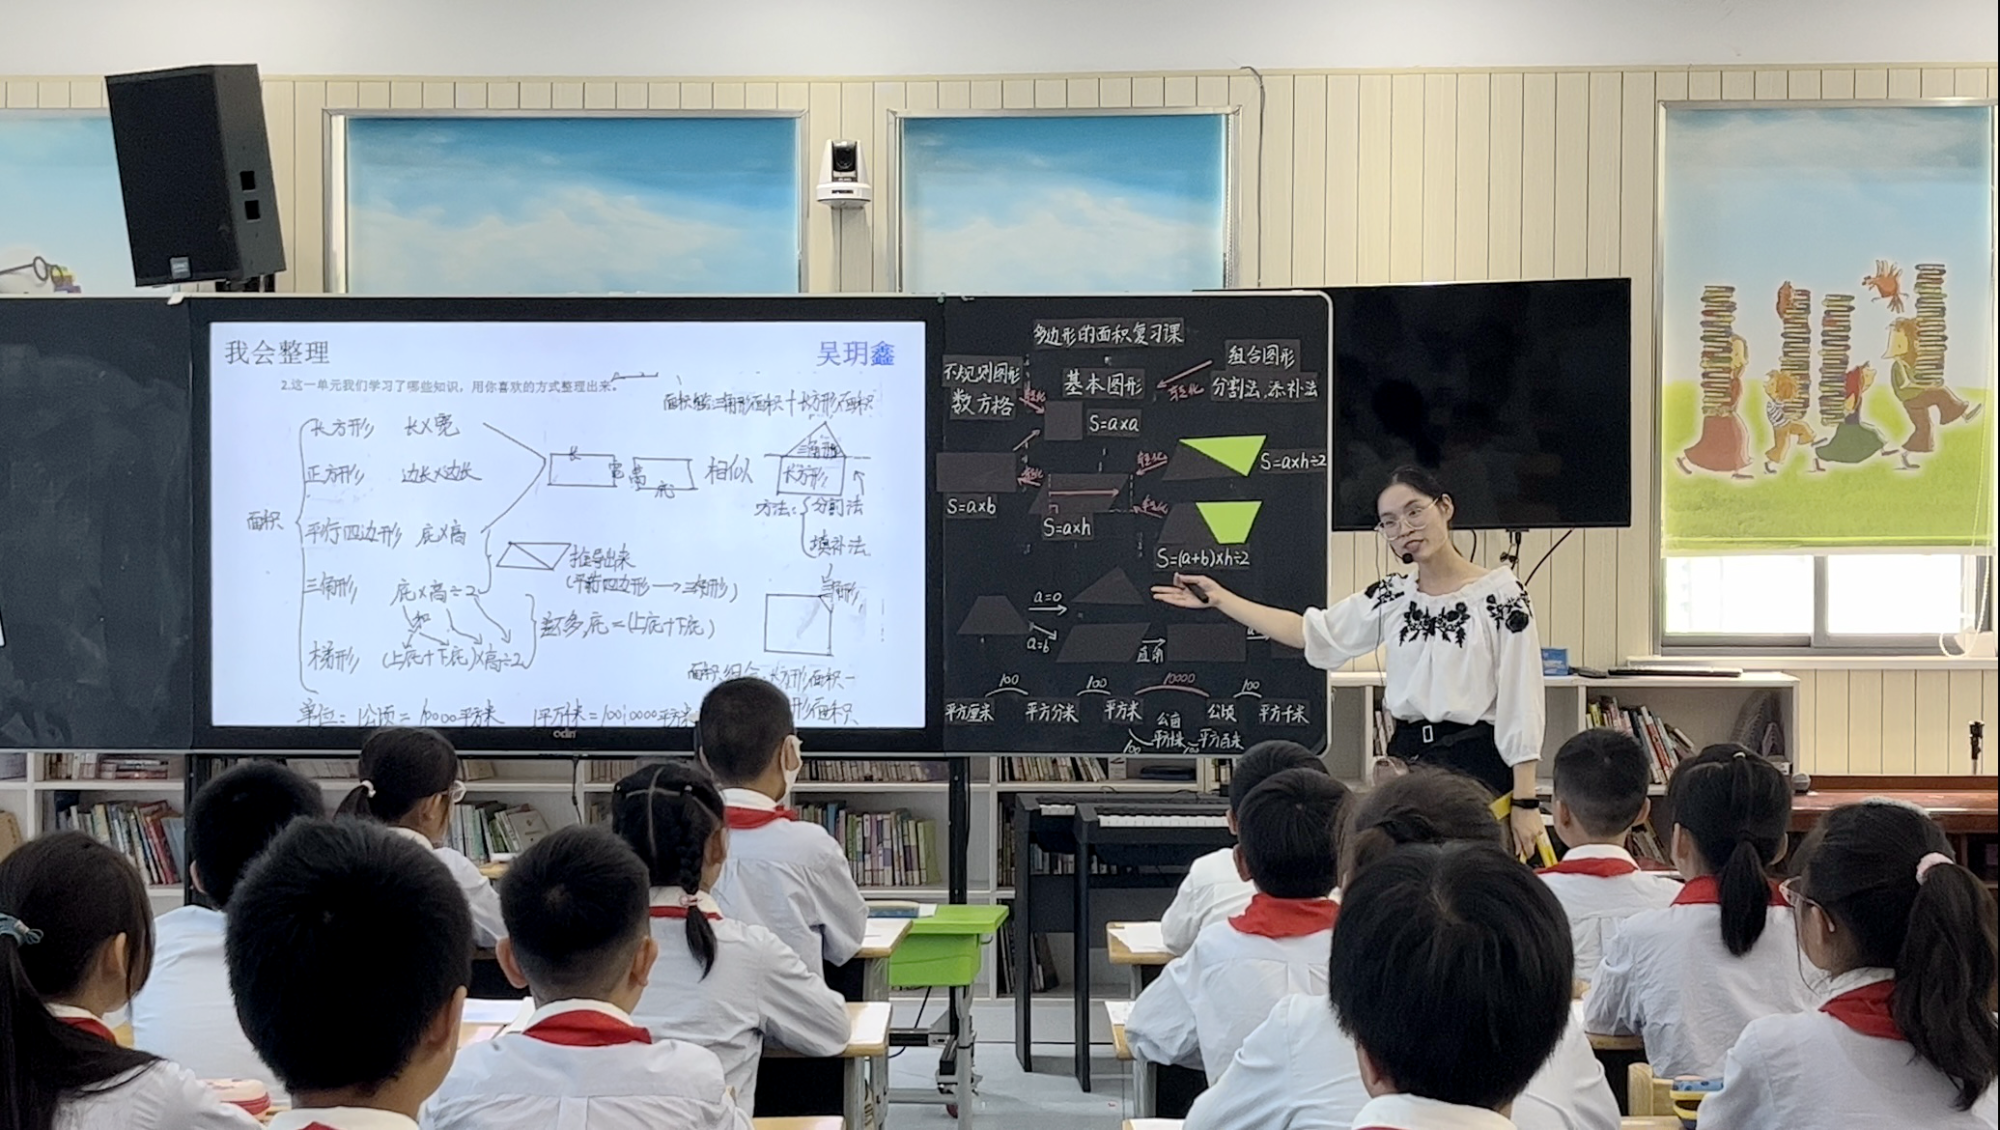 我会整理
吴玥鑫
2.这一单元我们学习了哪些知识，用你喜欢的方式整理出来。
长方形 长×宽
正方形 边长×边长
面积
平行四边形 底×高
三角形 底×高÷2
和
梯形 (上底+下底)×高÷2
长
宽
高
底
相似
推导出来
(平行四边形→三角形)
差不多,底=(上底+下底)
三角形面积+长方形面积
三角形
长方形
方法:
分割法
填补法
三角形
面积组合:长方形面积-
形面积
单位:1公顷=10000平方米
odin
多边形的面积复习课
不规则图形
数方格
基本图形
组合图形
分割法,添补法
转化
转化
S=a×a
转化
转化
S=a×h÷2
S=a×b
S=a×h
转化
S=(a+b)×h÷2
a=0
a=b
直角
100
100
10000
100
平方厘米
平方分米
平方米
公亩
公顷
平方千米
100
平方十米
100
平方百米